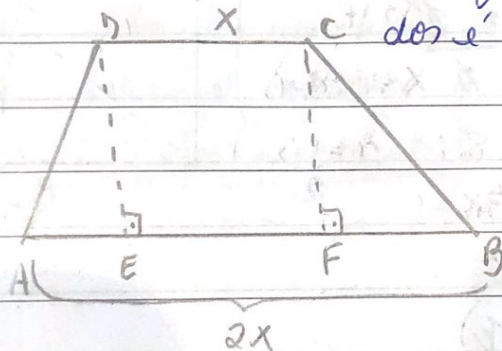 D X C dos é
E F
A B
2X